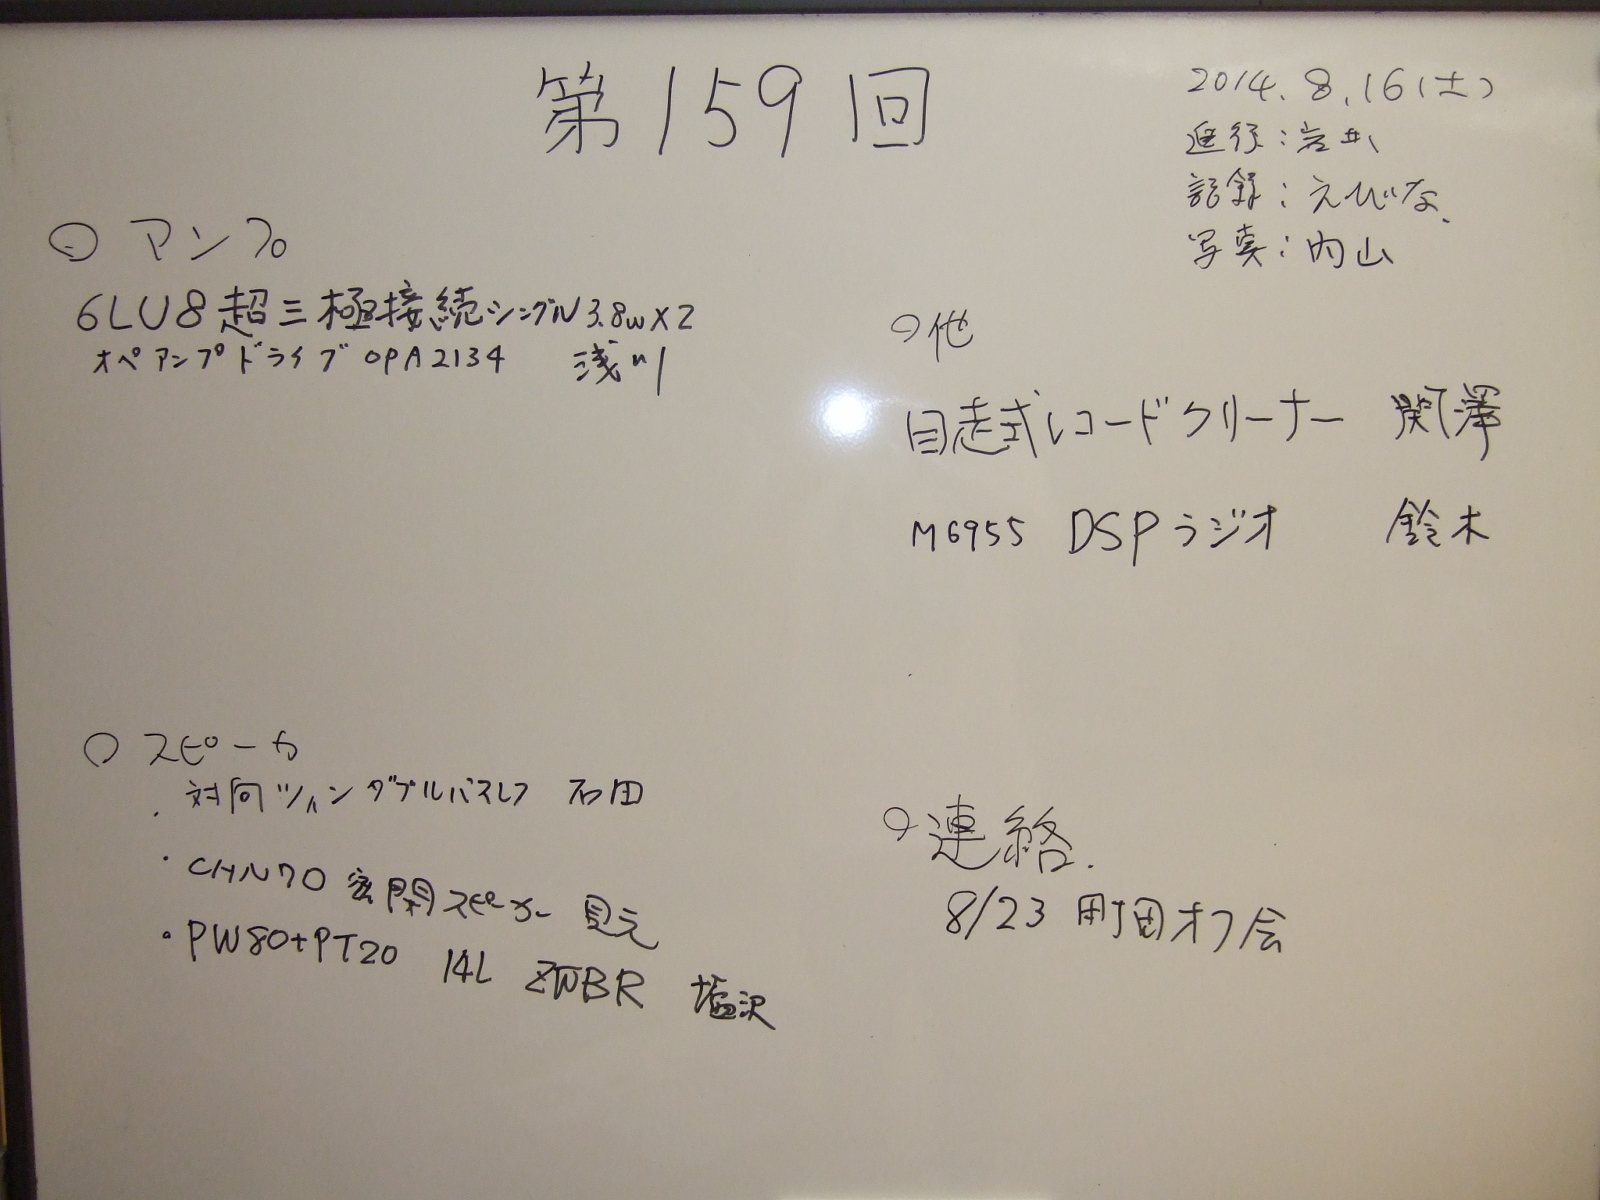 第159回
2014.8.16(土)
進行:岩井
記録:えびな.
写真:内山
○アンプ
6LU8超三極接続シングル3.8W×2
オペアンプドライブ OPA2134 浅川
○他
自走式レコードクリーナー 関澤
M6955 DSPラジオ 鈴木
○スピーカ
・対向ツインダブルバスレフ 石田
・CHN70 玄関スピーカー 見元
・PW80+PT20 14L ZWBR 塩沢
○連絡.
8/23 町田オフ会